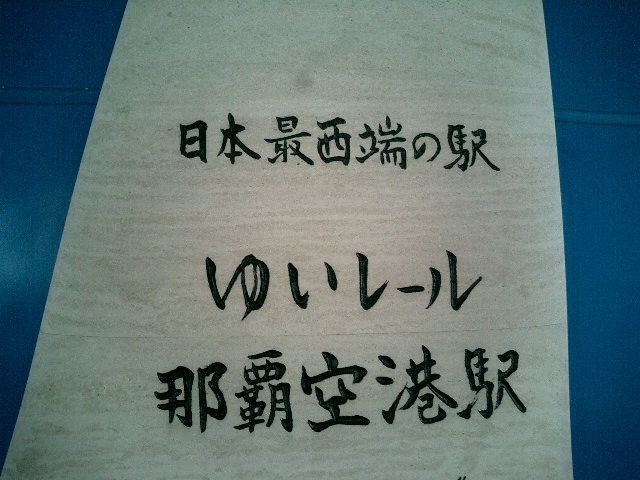 日本最西端の駅
ゆいレール
那覇空港駅